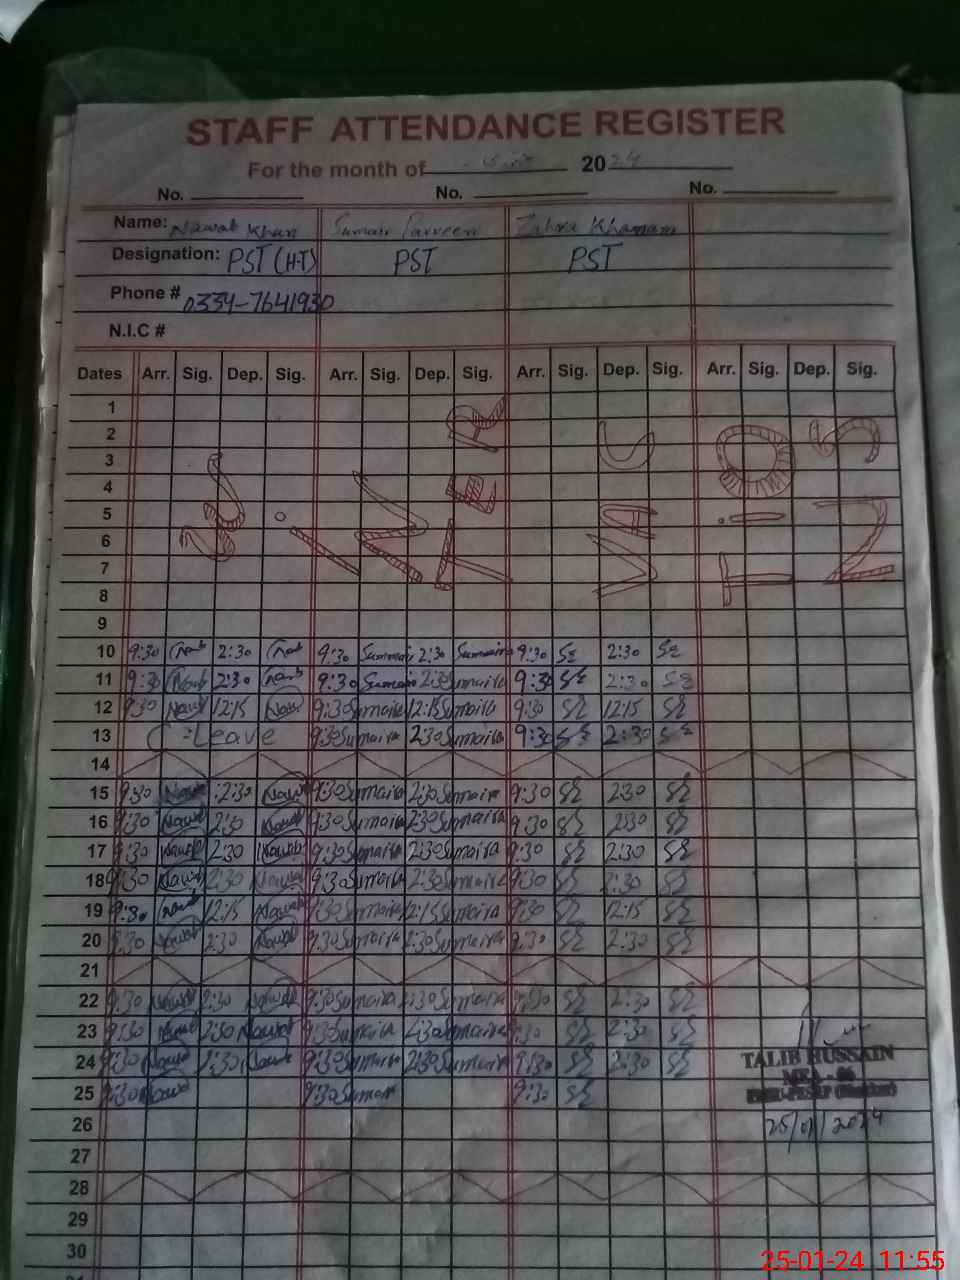 STAFF ATTENDANCE REGISTER
For the month of 2024
No. No. No.
Name: Nawab Khan Sumair Parveen Zahra Khanam
Designation: PST (H.T) PST PST
Phone # 0334-7641930
N.I.C #
Dates Arr. Sig. Dep. Sig. Arr. Sig. Dep. Sig. Arr. Sig. Dep. Sig. Arr. Sig. Dep. Sig.
1
2
3
4
5
6
7
8
9
WiNTER VACTiONS
10 9:30 2:30 9:30 Sumaira 2:30 Sumaira 9:30 2:30
11 9:30 Nawab 2:30 9:30 Sumaira 2:30 Sumaira 9:30 2:30
12 9:30 Nawab 12:15 Nawab 9:30 Sumaira 12:15 Sumaira 9:30 12:15
13 C-Leave 9:30 Sumaira 2:30 Sumaira 9:30 2:30
14
15 9:30 Nawab 2:30 Nawab 9:30 Sumaira 2:30 Sumaira 9:30 2:30
16 9:30 Nawab 2:30 Nawab 9:30 Sumaira 2:30 Sumaira 9:30 2:30
17 9:30 Nawab 2:30 Nawab 9:30 Sumaira 2:30 Sumaira 9:30 2:30
18 9:30 Nawab 2:30 Nawab 9:30 Sumaira 2:30 Sumaira 9:30 2:30
19 9:30 Nawab 12:15 Nawab 9:30 Sumaira 12:15 Sumaira 9:30 12:15
20 9:30 Nawab 2:30 Nawab 9:30 Sumaira 2:30 Sumaira 9:30 2:30
21
22 9:30 Nawab 2:30 Nawab 9:30 Sumaira 2:30 Sumaira 9:30 2:30
23 9:30 Nawab 2:30 Nawab 9:30 Sumaira 2:30 Sumaira 9:30 2:30
24 9:30 Nawab 2:30 Nawab 9:30 Sumaira 2:30 Sumaira 9:30 2:30
TALIB HUSSAIN
25 9:30 Nawab 9:30 Sumair 9:30
MEA - 06
25/01/2024
26
27
28
29
30
25-01-24 11:55